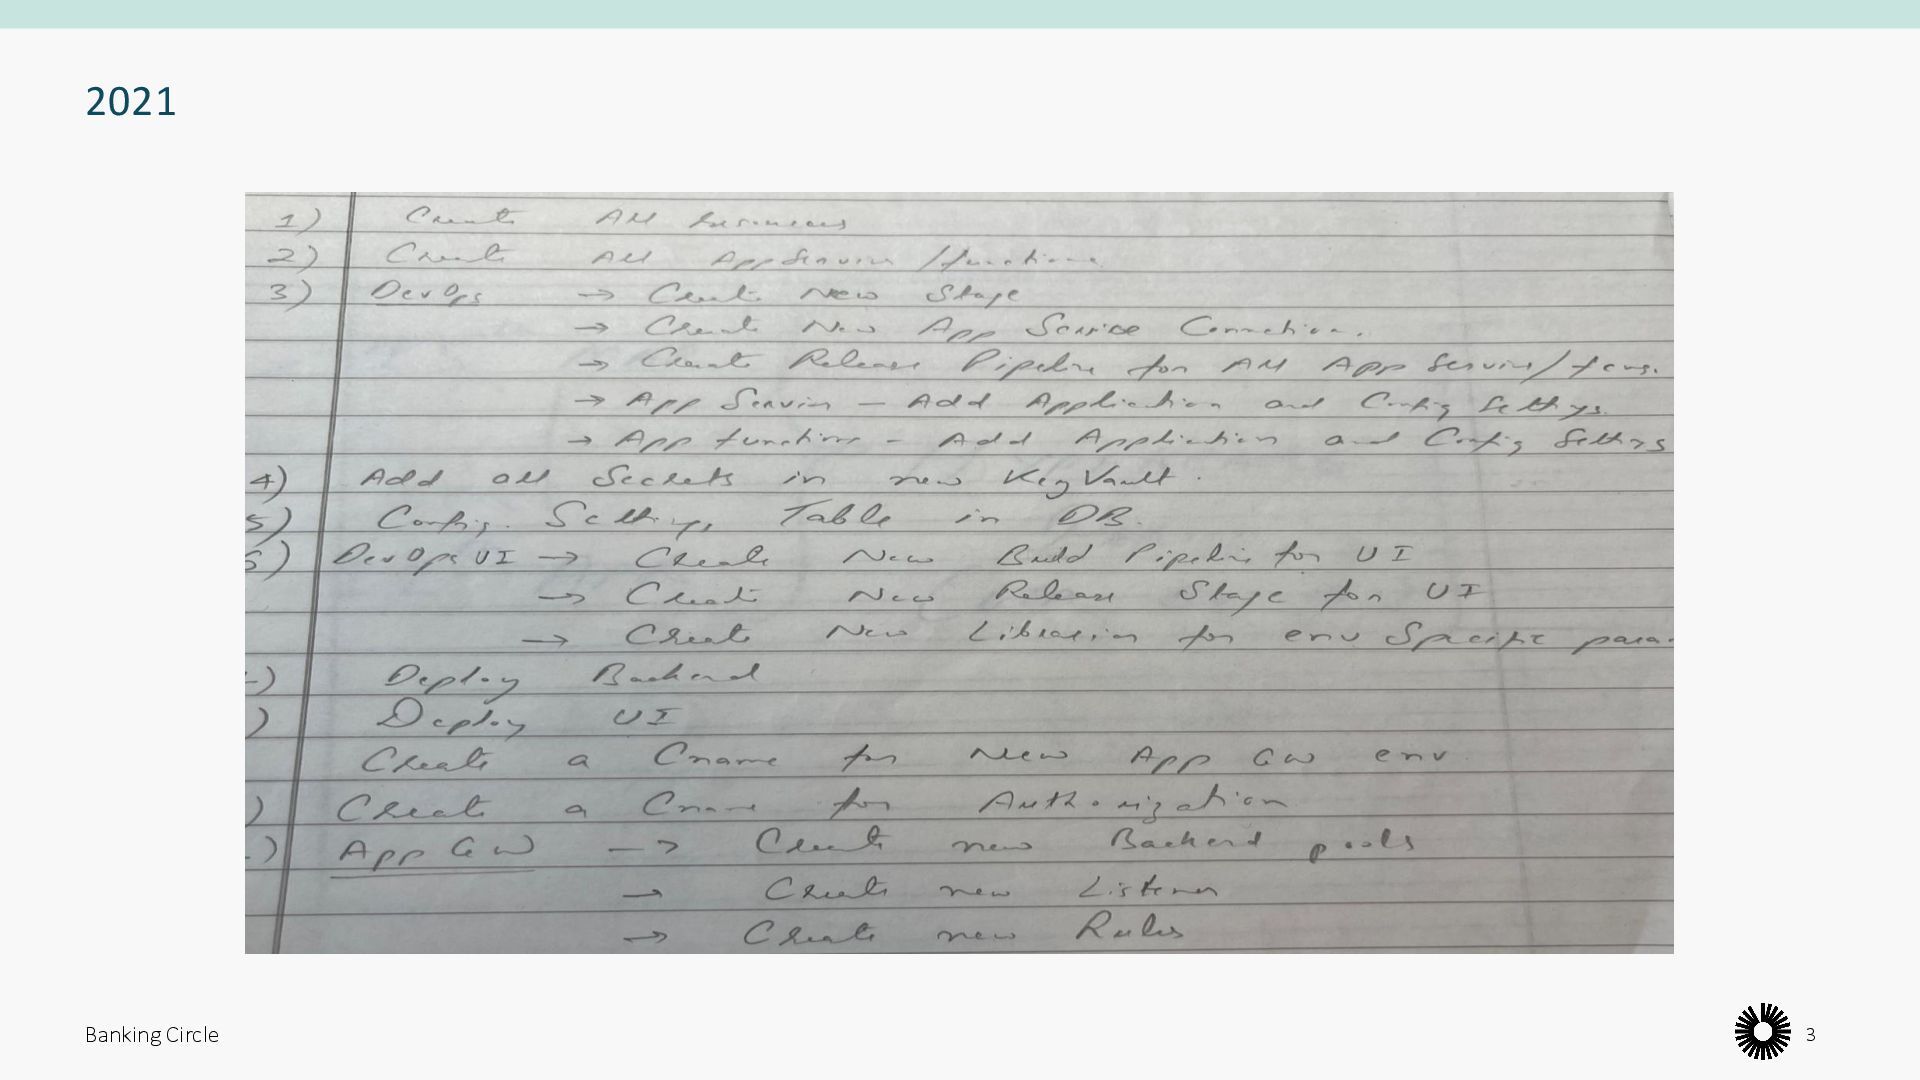 2021
1) Create All resources
2) Create All App Services /functions
3) DevOps → Create New Stage
→ Create New App Service Connection.
→ Create Release Pipeline for All App Service/
→ App Service - Add Application and Config Settings.
→ App functions - Add Application and Config Settings
4) Add all Secrets in new KeyVault.
5) Config. Settings Table in DB.
6) DevOps UI → Create New Build Pipeline for UI
→ Create New Release Stage for UI
→ Create New Libraries for env Specific para
) Deploy Backend
) Deploy UI
Create a Cname for New App GW env
) Create a Cname for Authorization
) App GW → Create new Backend pools
→ Create new Listener
→ Create new Rules
Banking Circle
3